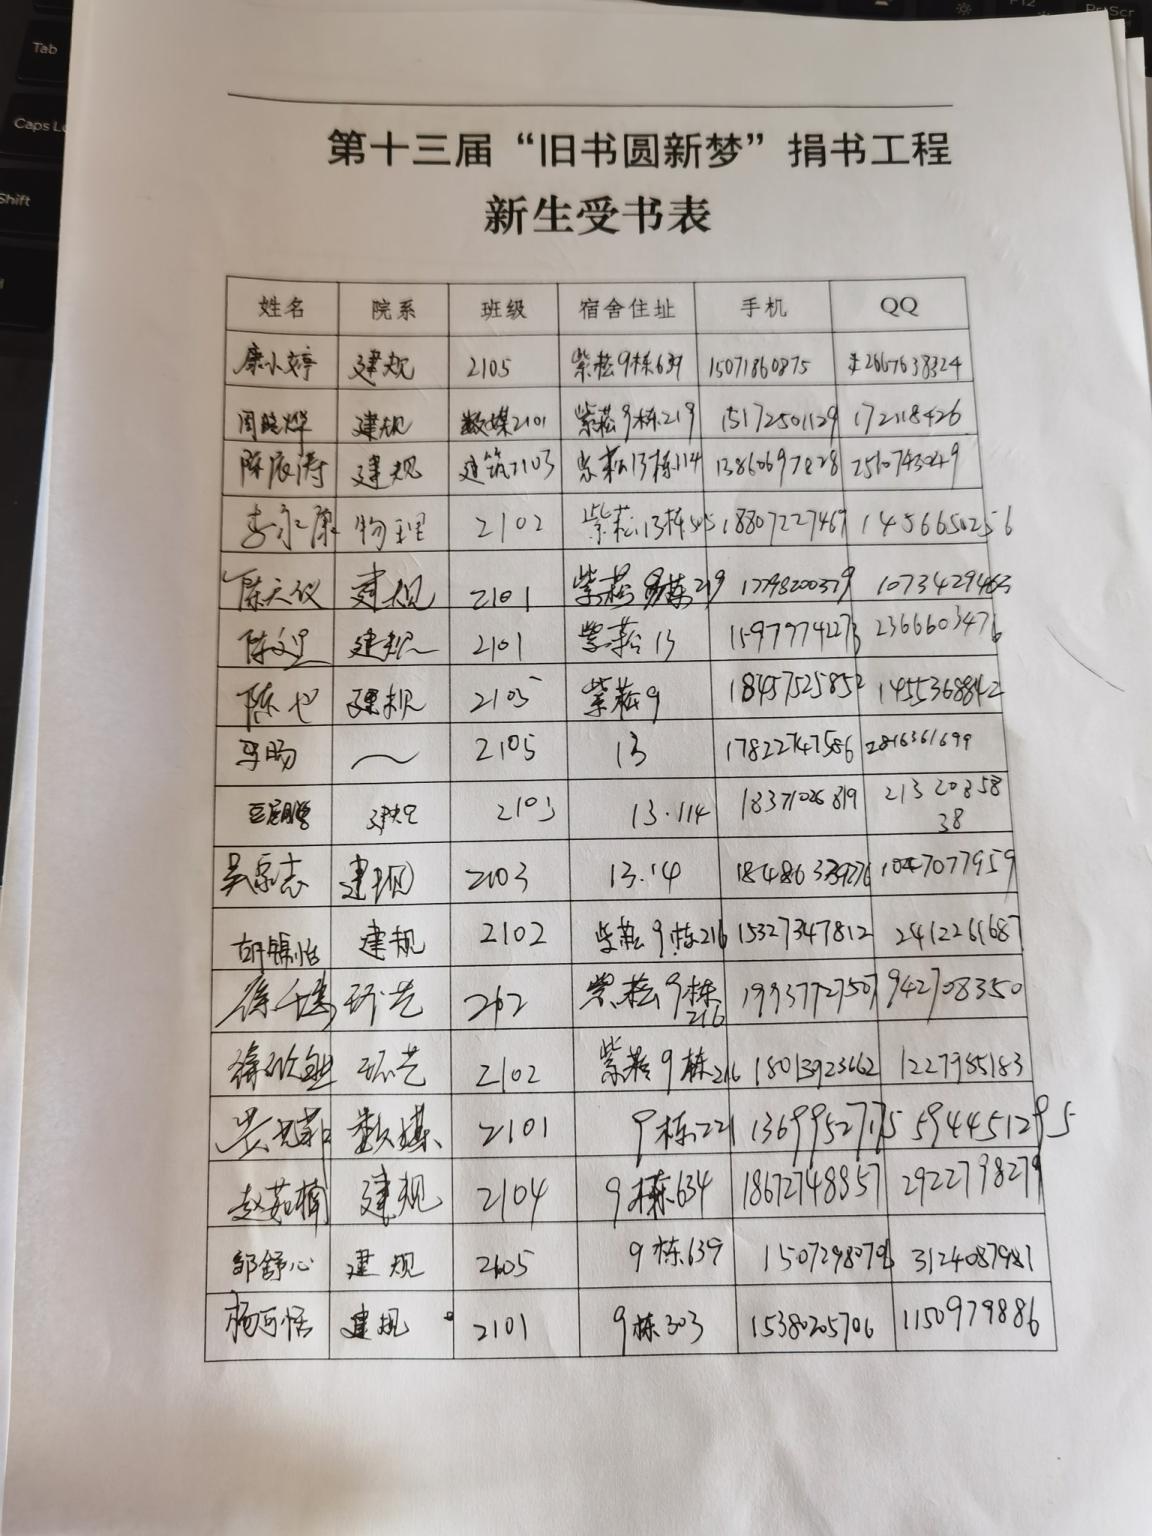 Tab
Caps Lo
Shift
F12
PrtScr
第十三届“旧书圆新梦”捐书工程
新生受书表
姓名 院系 班级 宿舍住址 手机 QQ
康小婷 建规 2105 紫菘9栋639 15071860875 2667638324
周晓烨 建规 数媒2101 紫菘9栋219 15172501129 172118426
陈辰涛 建规 建筑2103 紫菘13栋114 2510743049
李永康 物理 2102 紫菘13栋 18807227467 1456650256
陈天仪 建规 2101 紫菘9栋219 1073429463
建规 2101 紫菘13 15977774227 2366603476
陈也 建规 2105 紫菘9 18457525852 1455368842
2105 13 17822747586 2816361699
建规 2103 13.114 18371026819 2132035838
建规 2103 13.114 1047077959
胡锦怡 建规 2102 紫菘9栋216 15327347812 2412261687
徐 环艺 2102 紫菘9栋216 19937727507 942708350
徐 环艺 2102 紫菘9栋216 18013923662 1227985183
数媒 2101 9栋221 13699527175 5944451295
赵茹楠 建规 2104 9栋634 18672748857 2922798279
邹舒心 建规 2105 9栋639 15072980796 3124087981
杨可恬 建规 2101 9栋303 15380205706 1150979886